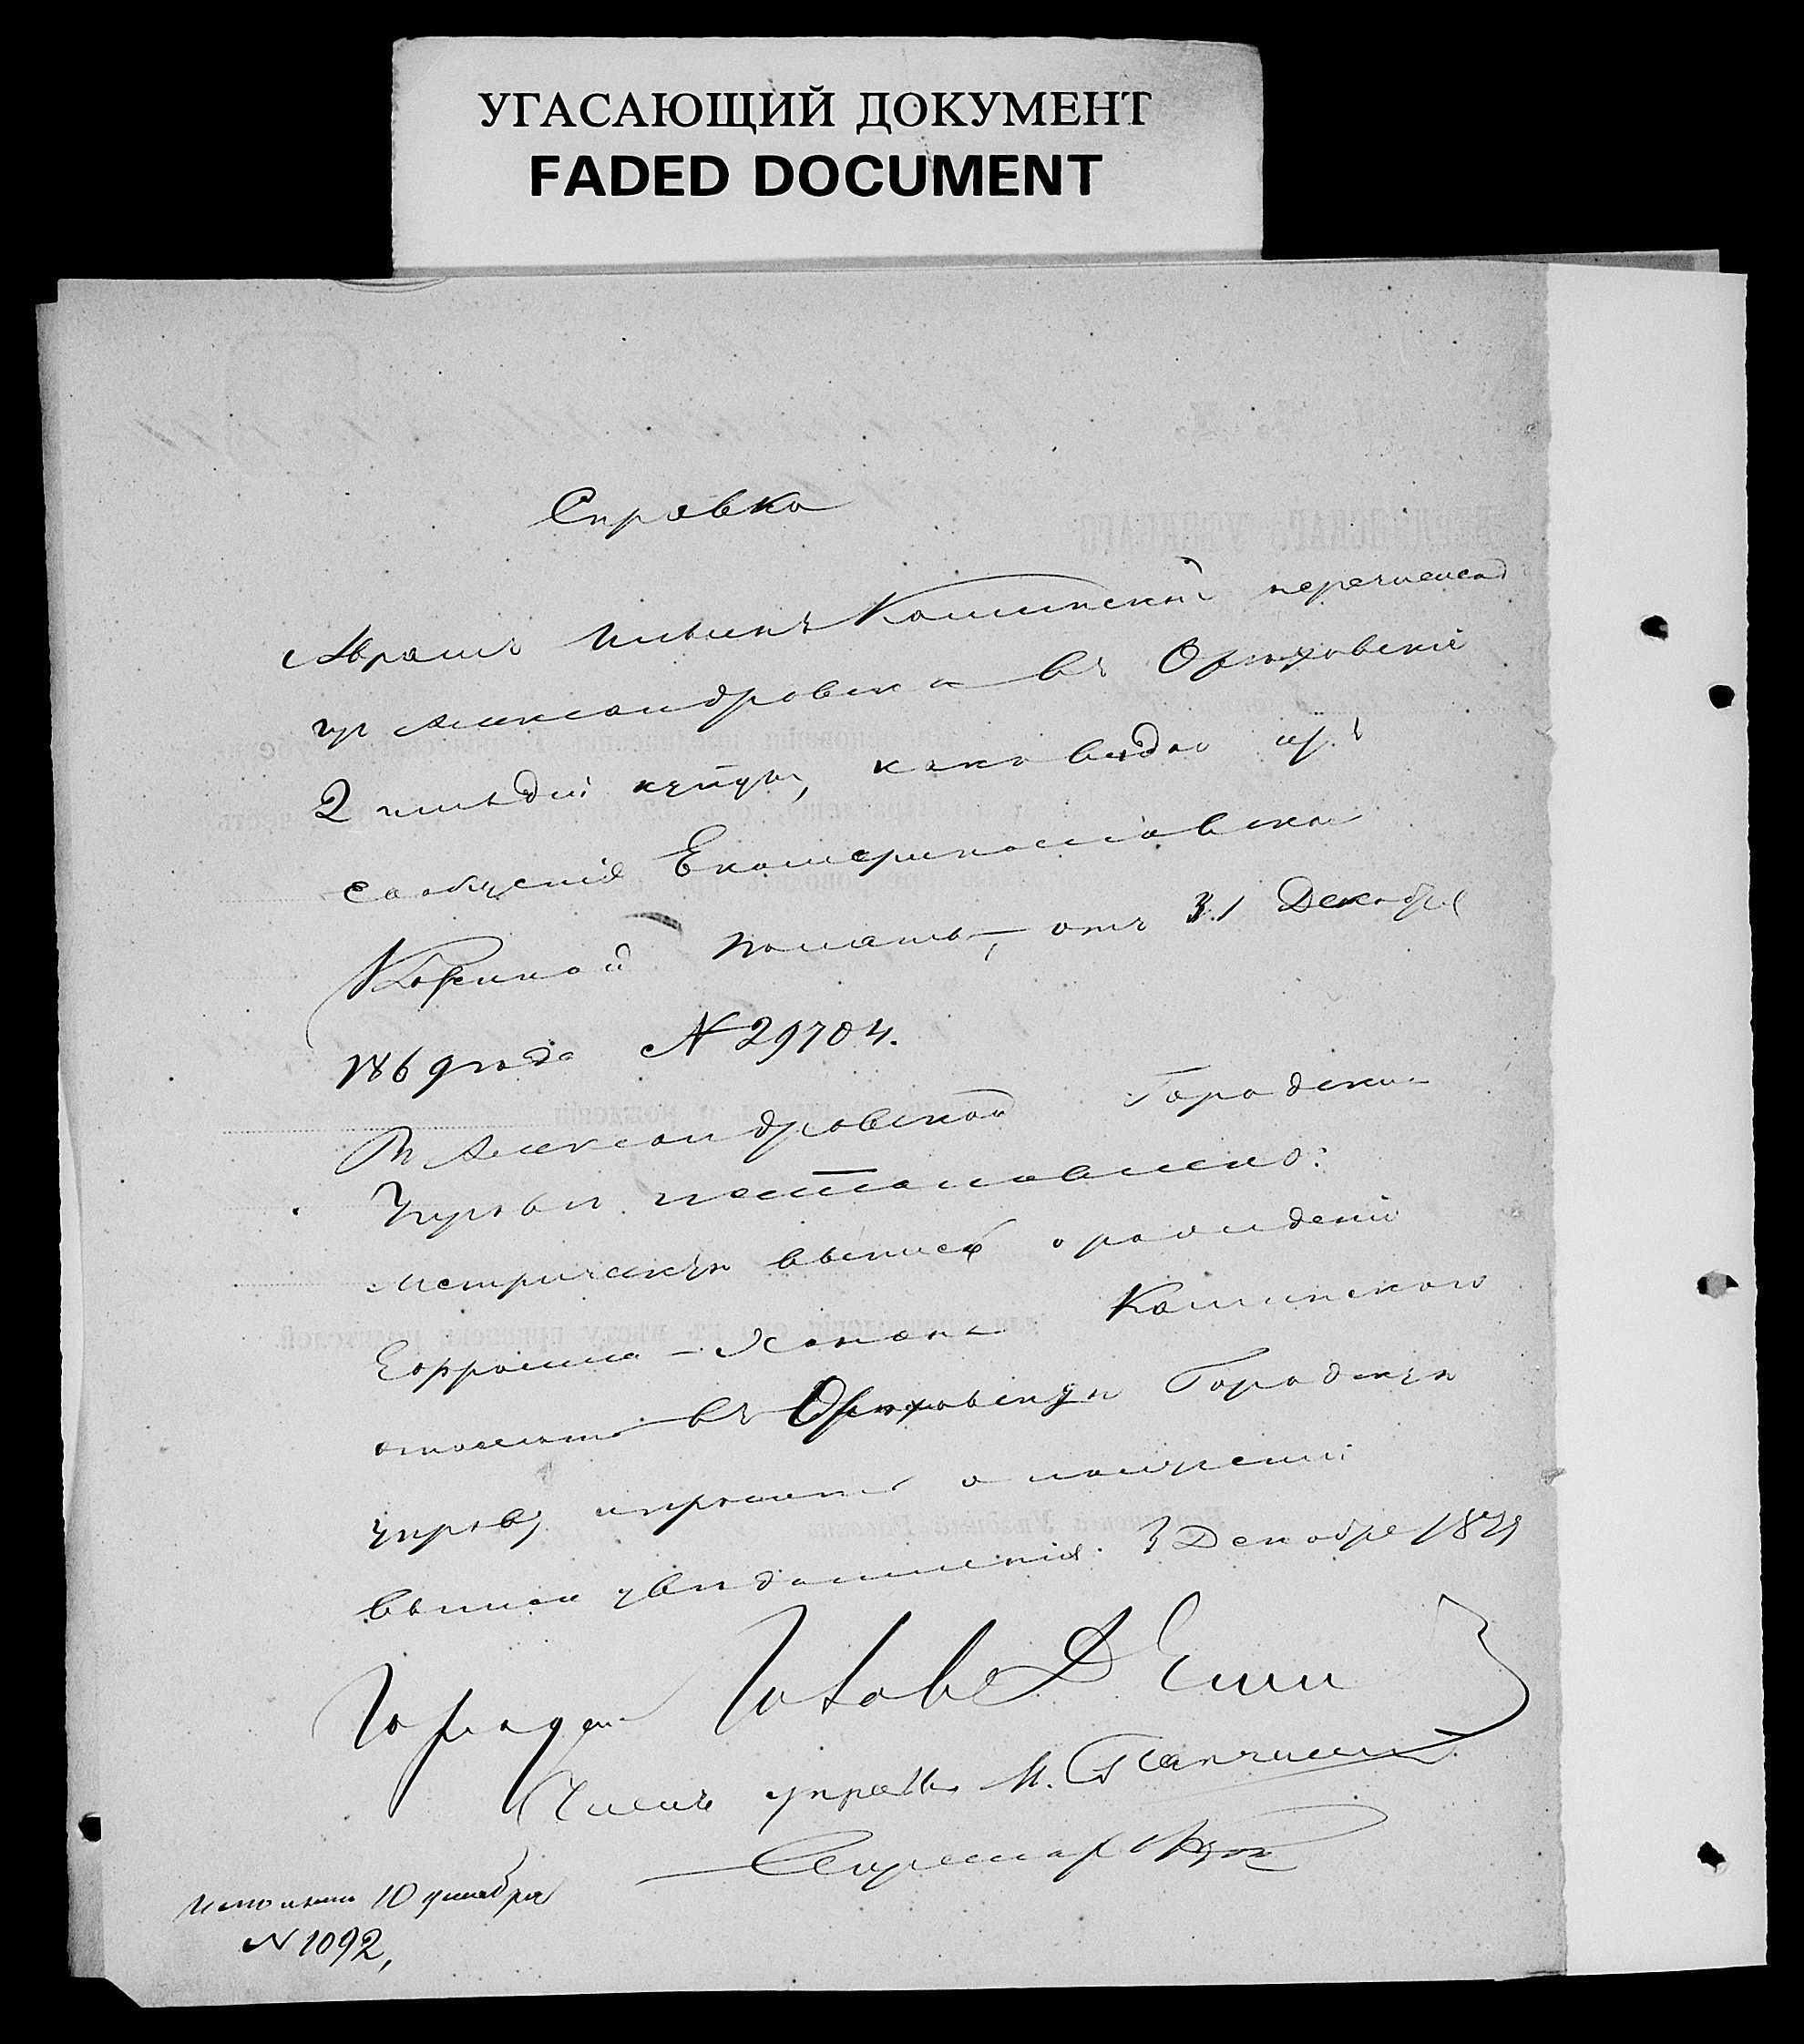 УГАСАЮЩИЙ ДОКУМЕНТ
FADED DOCUMENT
Справка
Абрамъ Ильинъ Коминскій перечислен
изъ Александровска въ Ореховскіе
2 гильдіи купцы, какъ видно изъ
сообщенія Екатеринославской
Казенной Палаты, отъ 31 Декабря
1869 года № 29704.
Въ Александровской Городской
Управѣ постановлено:
метрическую выпись о рожденіи
Ефроима-Хонона Коминского
отослать въ Ореховскую Городскую
управу и просить о полученіи
выписи увѣдомленія. 3 Декабря 1879
Городской Голова Д
Членъ управы М.
Секретарь
Исполнено 10 декабря
№ 1092,